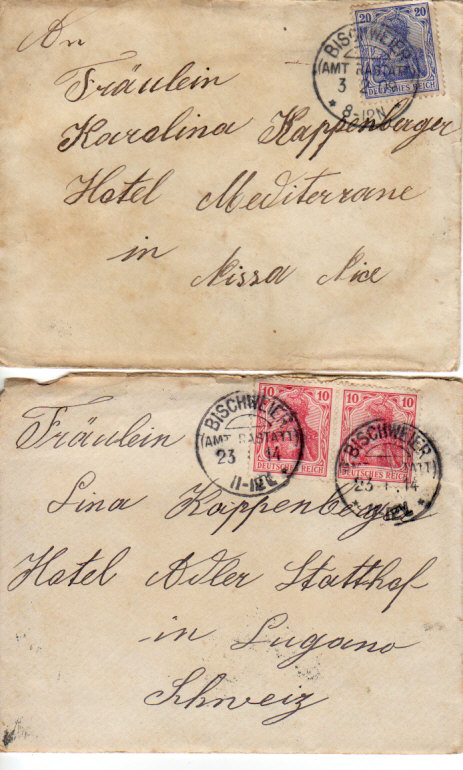 An
Fräulein
Karolina Kappenberger
Hotel Mediterrane
in
Nissa Nice
20 20
DEUTSCHES REICH
BISCHWEIER
(AMT RASTATT)
3
8-12N
Fräulein
Lina Kappenberger
Hotel Adler Statthof
in Lugano
Schweiz
10 10
DEUTSCHES REICH
10 10
DEUTSCHES REICH
BISCHWEIER
(AMT RASTATT)
23 1 14
11-12V
BISCHWEIER
23 1 14
11-12V